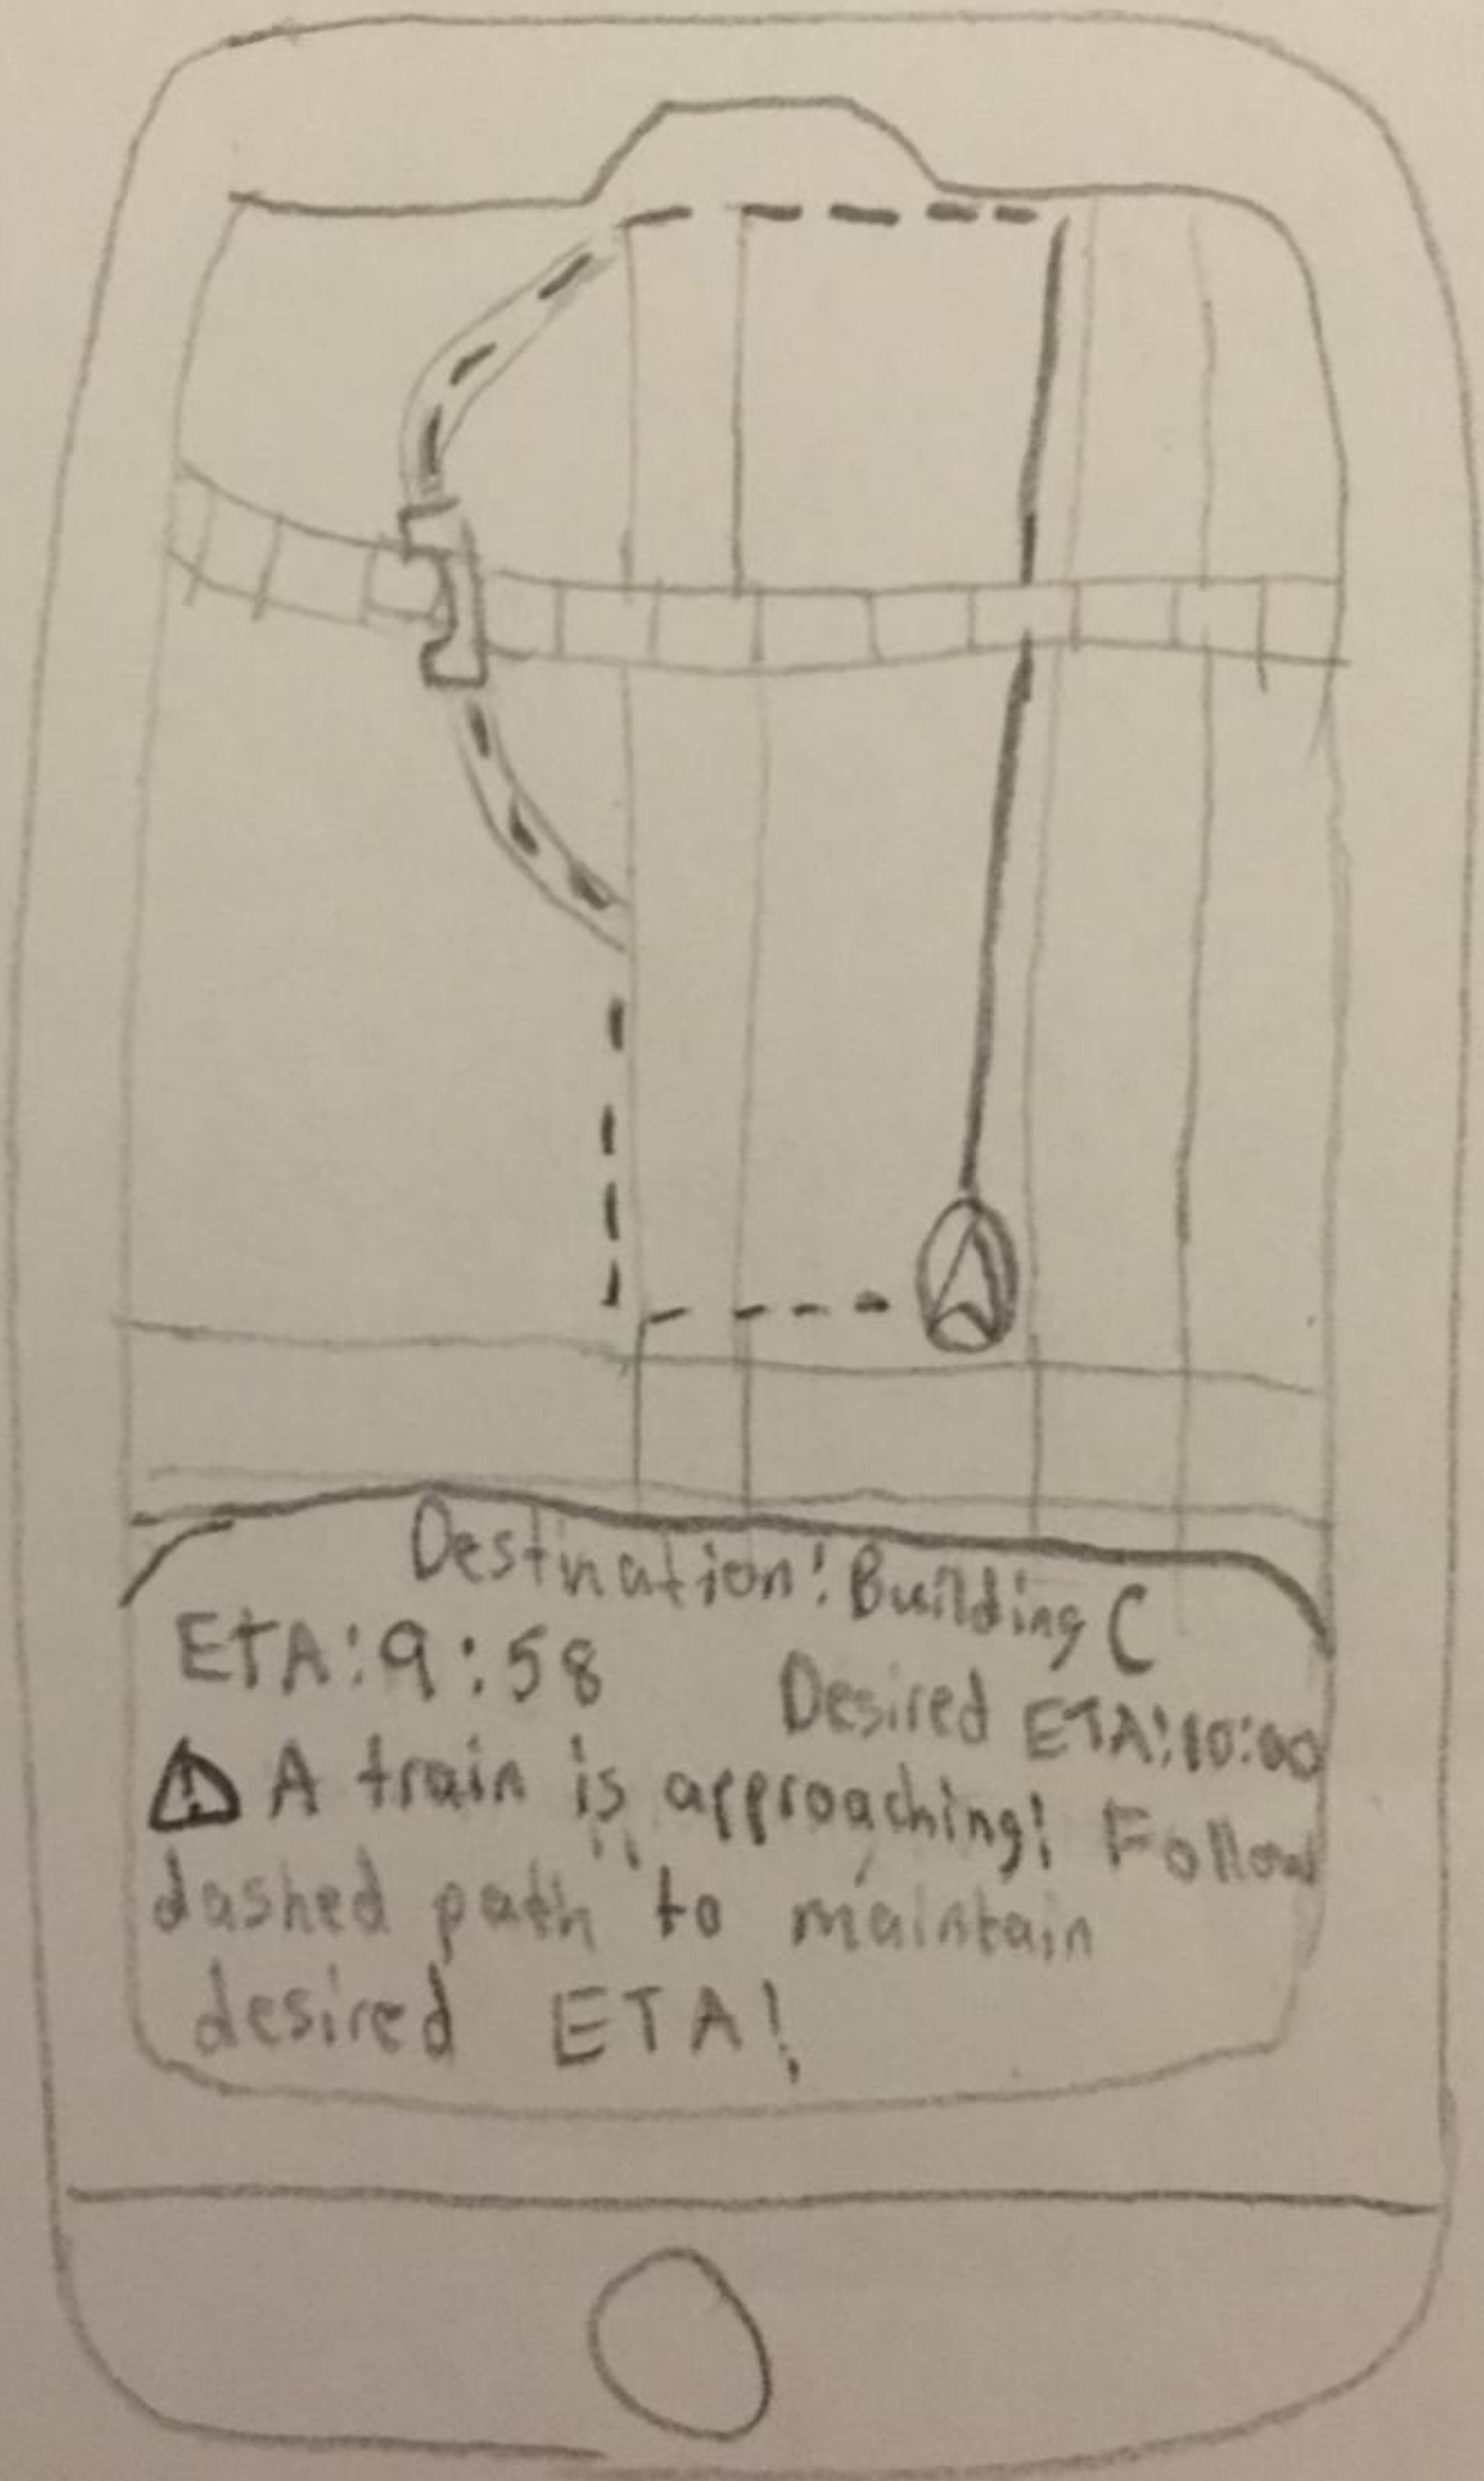 Destination: Building C
ETA: 9:58
Desired ETA: 10:00
A train is approaching! Follow
"dashed path" to maintain
desired ETA!